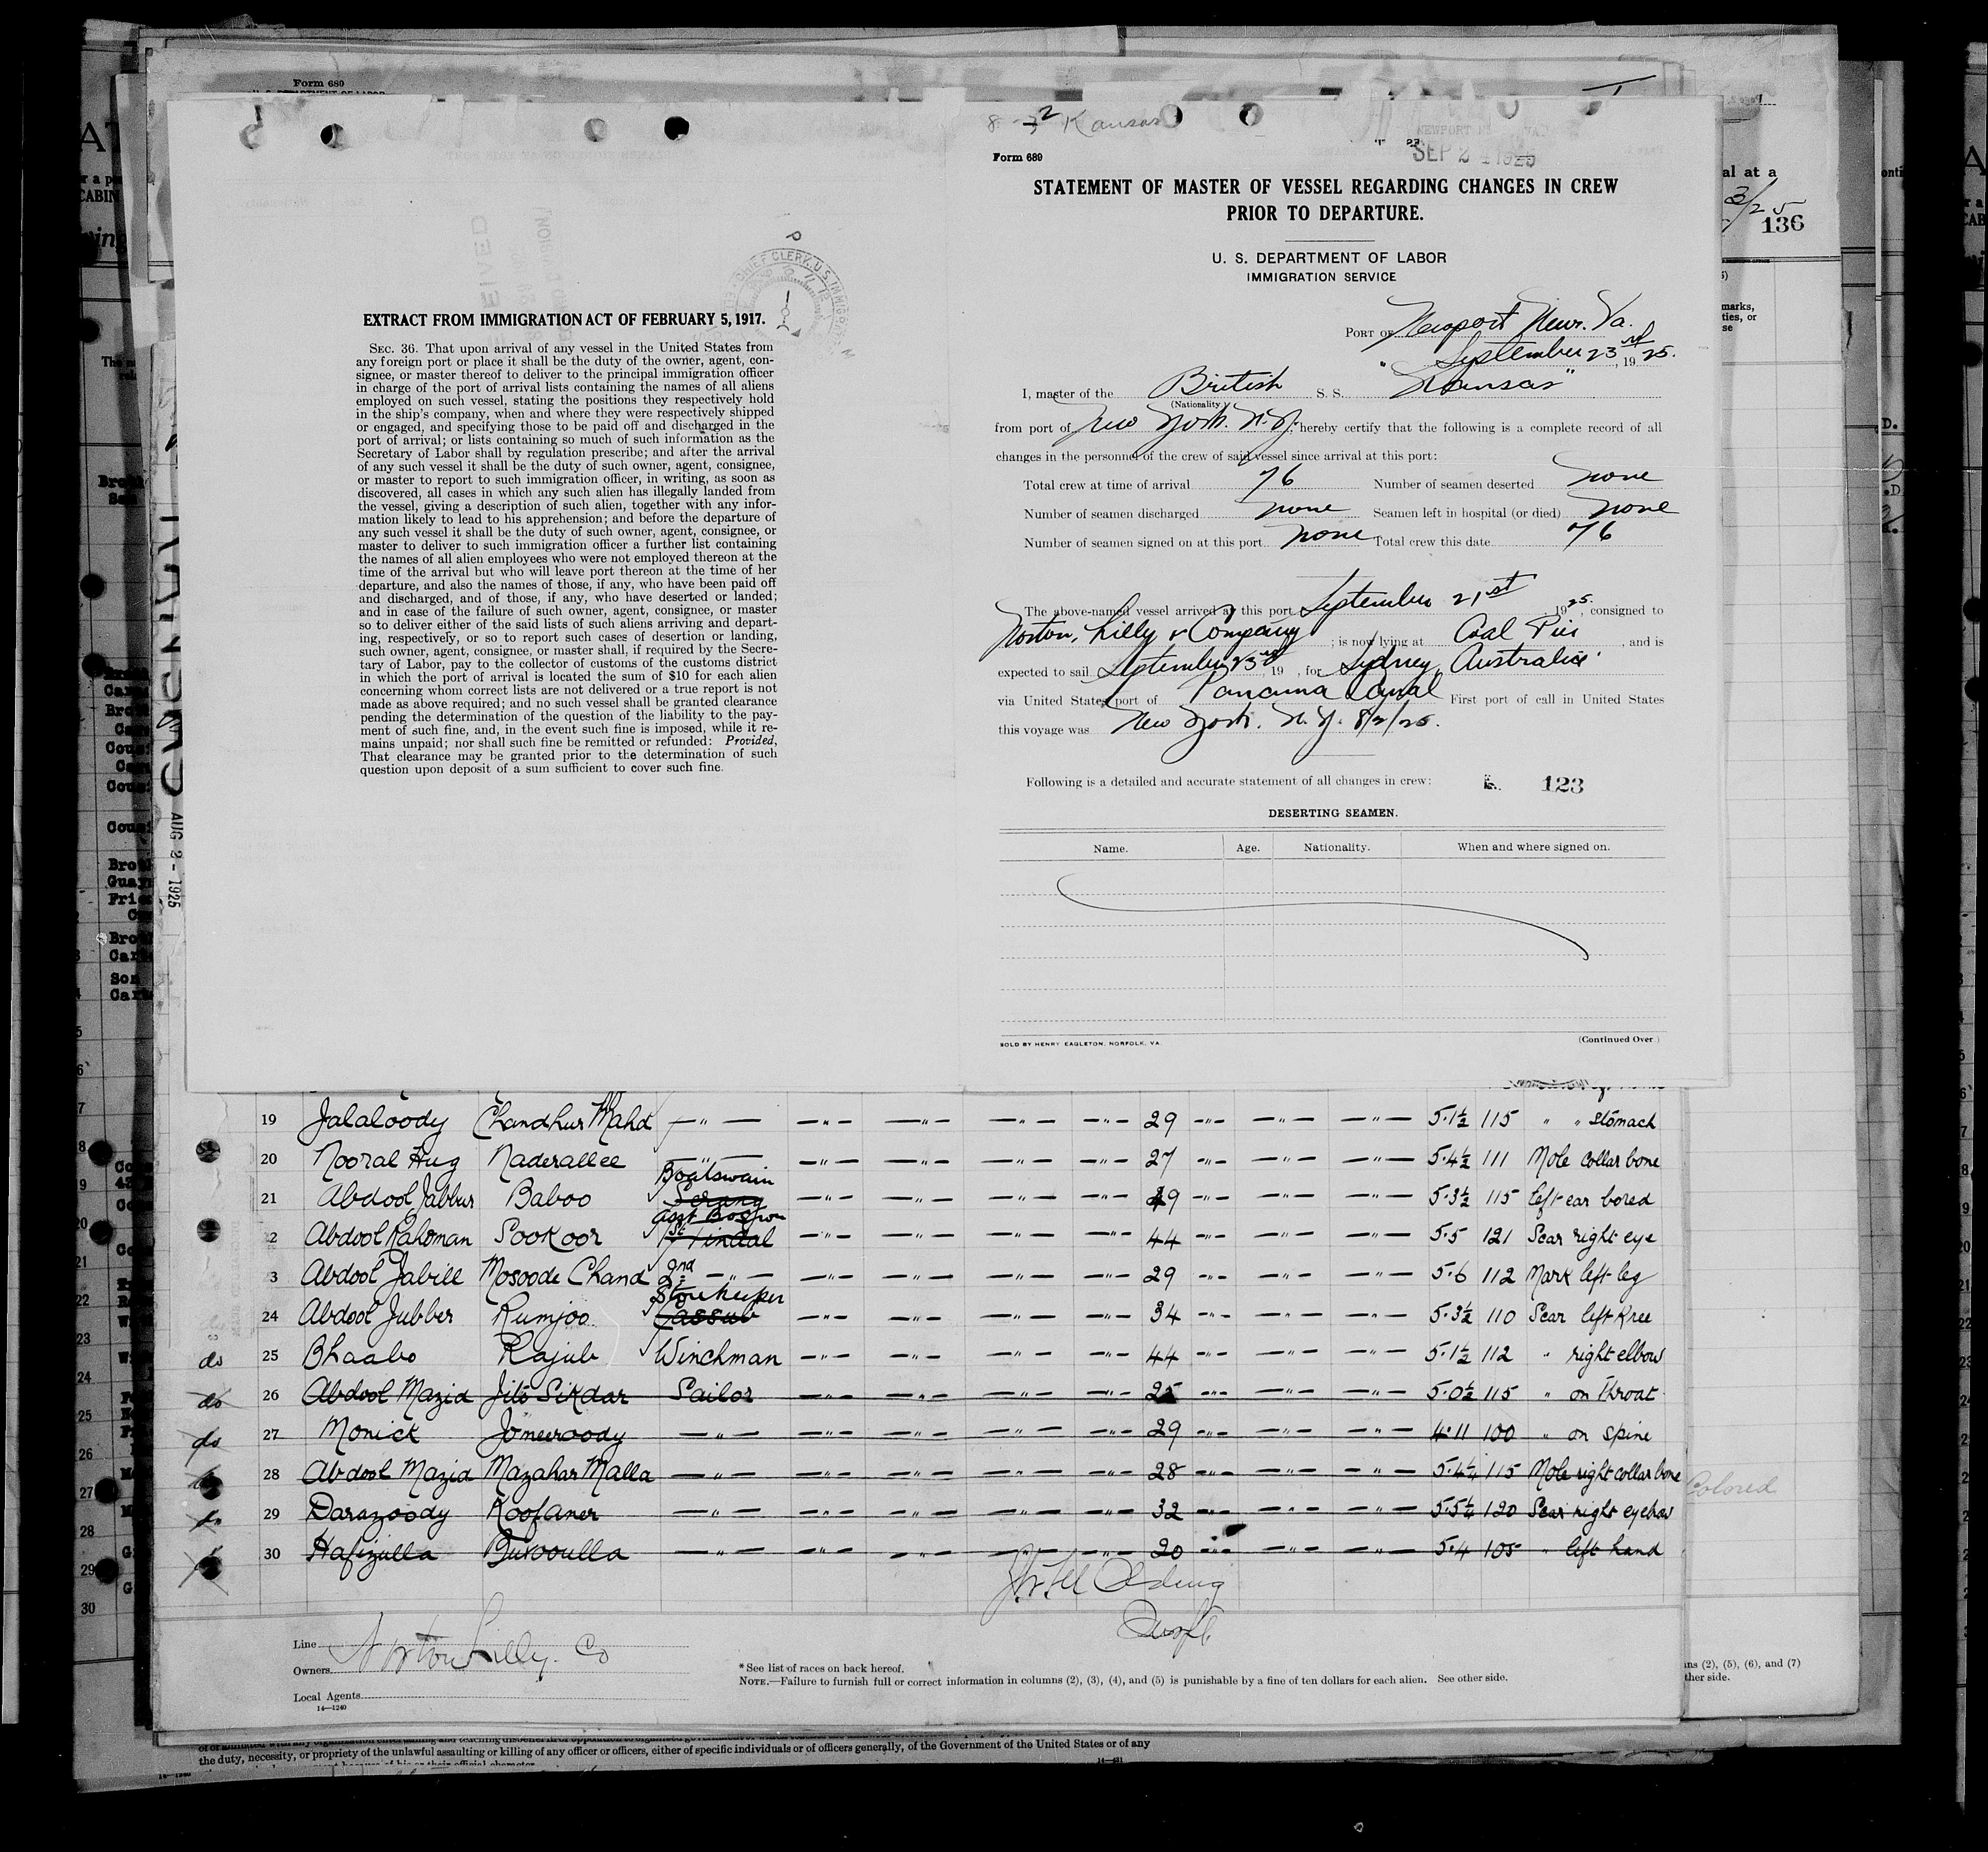 Form 689
EXTRACT FROM IMMIGRATION ACT OF FEBRUARY 5, 1917.
SEC. 36. That upon arrival of any vessel in the United States from
any foreign port or place it shall be the duty of the owner, agent, con-
signee, or master thereof to deliver to the principal immigration officer
in charge of the port of arrival lists containing the names of all aliens
employed on such vessel, stating the positions they respectively hold
in the ship's company, when and where they were respectively shipped
or engaged, and specifying those to be paid off and discharged in the
port of arrival; or lists containing so much of such information as the
Secretary of Labor shall by regulation prescribe; and after the arrival
of any such vessel it shall be the duty of such owner, agent, consignee,
or master to report to such immigration officer, in writing, as soon as
discovered, all cases in which any such alien has illegally landed from
the vessel, giving a description of such alien, together with any infor-
mation likely to lead to his apprehension; and before the departure of
any such vessel it shall be the duty of such owner, agent, consignee, or
master to deliver to such immigration officer a further list containing
the names of all alien employees who were not employed thereon at the
time of the arrival but who will leave port thereon at the time of her
departure, and also the names of those, if any, who have been paid off
and discharged, and of those, if any, who have deserted or landed;
and in case of the failure of such owner, agent, consignee, or master
so to deliver either of the said lists of such aliens arriving and depart-
ing, respectively, or so to report such cases of desertion or landing,
such owner, agent, consignee, or master shall, if required by the Secre-
tary of Labor, pay to the collector of customs of the customs district
in which the port of arrival is located the sum of $10 for each alien
concerning whom correct lists are not delivered or a true report is not
made as above required; and no such vessel shall be granted clearance
pending the determination of the question of the liability to the pay-
ment of such fine, and, in the event such fine is imposed, while it re-
mains unpaid; nor shall such fine be remitted or refunded: Provided,
That clearance may be granted prior to the determination of such
question upon deposit of a sum sufficient to cover such fine.
AUG 2 - 1925
Kansas
Form 689
SEP 24 1925
STATEMENT OF MASTER OF VESSEL REGARDING CHANGES IN CREW
PRIOR TO DEPARTURE.
U. S. DEPARTMENT OF LABOR
IMMIGRATION SERVICE
PORT OF Newport News. Va.
September 23rd, 1925.
I, master of the British S. S. "Kansas"
(Nationality)
from port of New York. N.Y., hereby certify that the following is a complete record of all
changes in the personnel of the crew of said vessel since arrival at this port:
Total crew at time of arrival 76 Number of seamen deserted none
Number of seamen discharged none Seamen left in hospital (or died) none
Number of seamen signed on at this port none Total crew this date 76
The above-named vessel arrived at this port September 21st 1925, consigned to
Norton, Lilly & Company; is now lying at Coal Pier, and is
expected to sail September 23rd, 19 , for Sydney, Australia.
via United States port of Panama Canal First port of call in United States
this voyage was New York. N.Y. 8/2/25.
Following is a detailed and accurate statement of all changes in crew:
123
DESERTING SEAMEN.
Name. Age. Nationality. When and where signed on.
SOLD BY HENRY EAGLETON, NORFOLK, VA.
(Continued Over.)
al at a
3/25
136
19 Jalaloody Chandhur Mahd —"— 29 5·1½ 115 " " Stomach
20 Nooral Hug Naderallee —"— 27 5·4½ 111 Mole collar bone
21 Abdool Jabbur Baboo Boatswain Serang 49 5·3½ 115 left ear bored
2 Abdool Rahoman Sookoor asst Bos'n 1st Tindal 44 5·5 121 Scar right eye
3 Abdool Jabill Mosoode Chand 2nd —"— 29 5·6 112 Mark left leg
24 Abdool Jubber Rumjoo Storekeeper Cassub 34 5·3½ 110 Scar left knee
do 25 Bhaabo Rajub Winchman 44 5·1½ 112 " right elbow
do 26 Abdool Mazid Jito Sikdar Sailor 25 5·0½ 115 " on throat
do 27 Monick Jomeeroody —"— 29 4·11 100 " on spine
28 Abdool Mazid Mazahar Malla —"— 28 5·4¼ 115 Mole right collar bone
29 Darazoody Koofaner —"— 32 5·5¼ 120 Scar right eyebrow
30 Hafizulla Burooulla —"— 20 5·4 105 " left hand
Colored
Line Norton Lilly. Co
Owners
Local Agents
14—1240
* See list of races on back hereof.
NOTE.—Failure to furnish full or correct information in columns (2), (3), (4), and (5) is punishable by a fine of ten dollars for each alien. See other side.
(2), (5), (6), and (7)
ther side.
the duty, necessity, or propriety of the unlawful assaulting or killing of any officer or officers, either of specific individuals or of officers generally, of the Government of the United States or of any